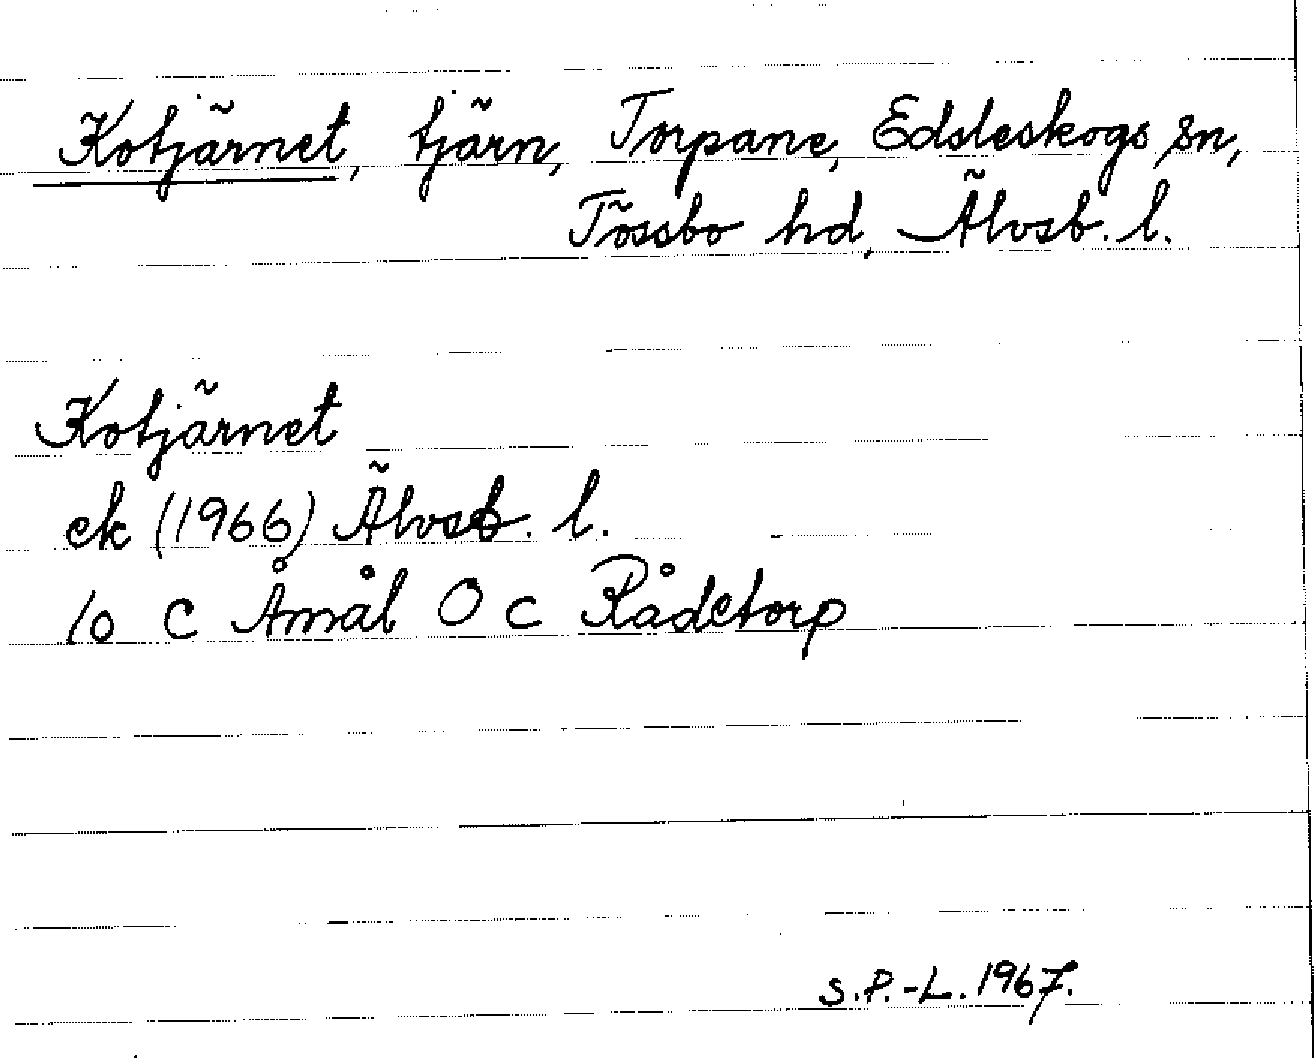 Kotjärnet, tjärn, Torpane, Edsleskogs sn,
Tössbo hd, Älvsb. l.
Kotjärnet
ek (1966) Älvsb. l.
10 C Åmål O C Rådetorp
S.P.-L. 1967.